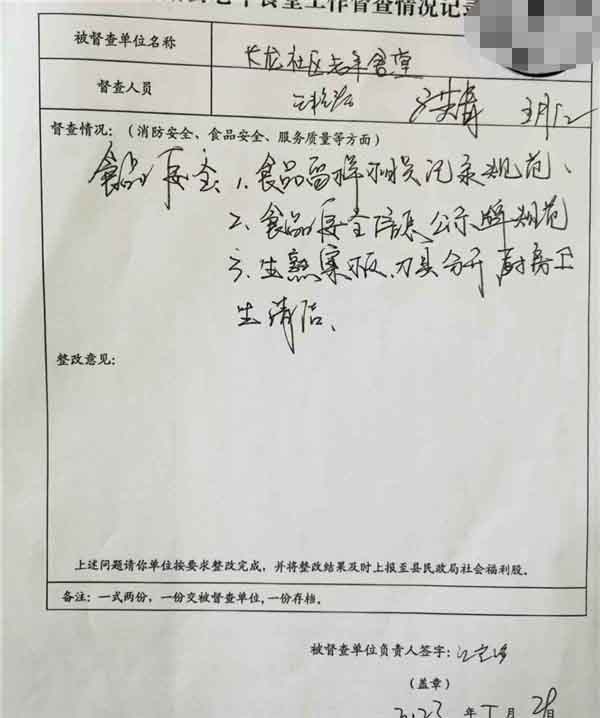 老年食堂工作督查情况记录
被督查单位名称 长龙社区老年食堂
督查人员
督查情况：（消防安全、食品安全、服务质量等方面）
食品安全：1、食品留样相关记录规范、
2、食品安全信息公示牌规范
3、生熟案板、刀具分开 厨房卫
生清洁、
整改意见：
上述问题请你单位按要求整改完成，并将整改结果及时上报至县民政局社会福利股。
备注：一式两份，一份交被督查单位，一份存档。
被督查单位负责人签字：
（盖章）
2023 年 月 日